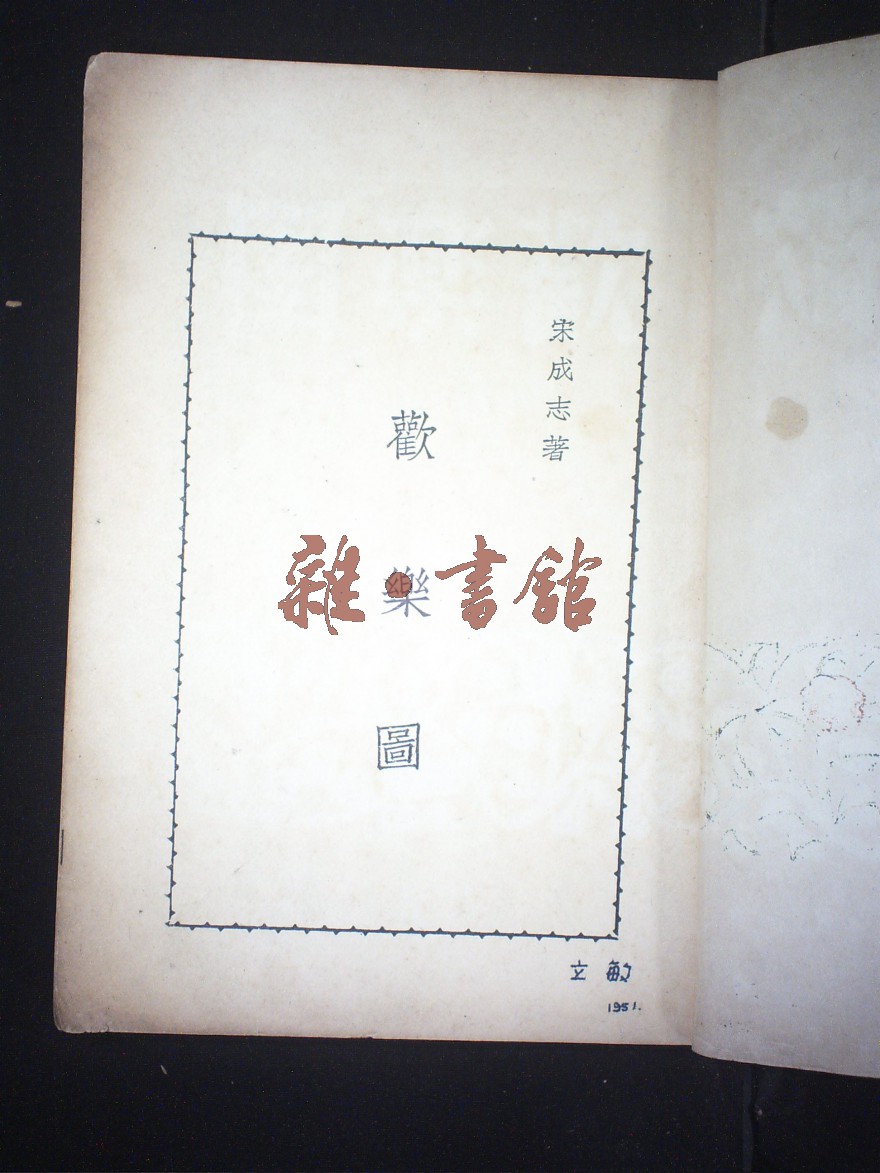 宋成志著
歡樂圖
雜書館
立敏
1951.